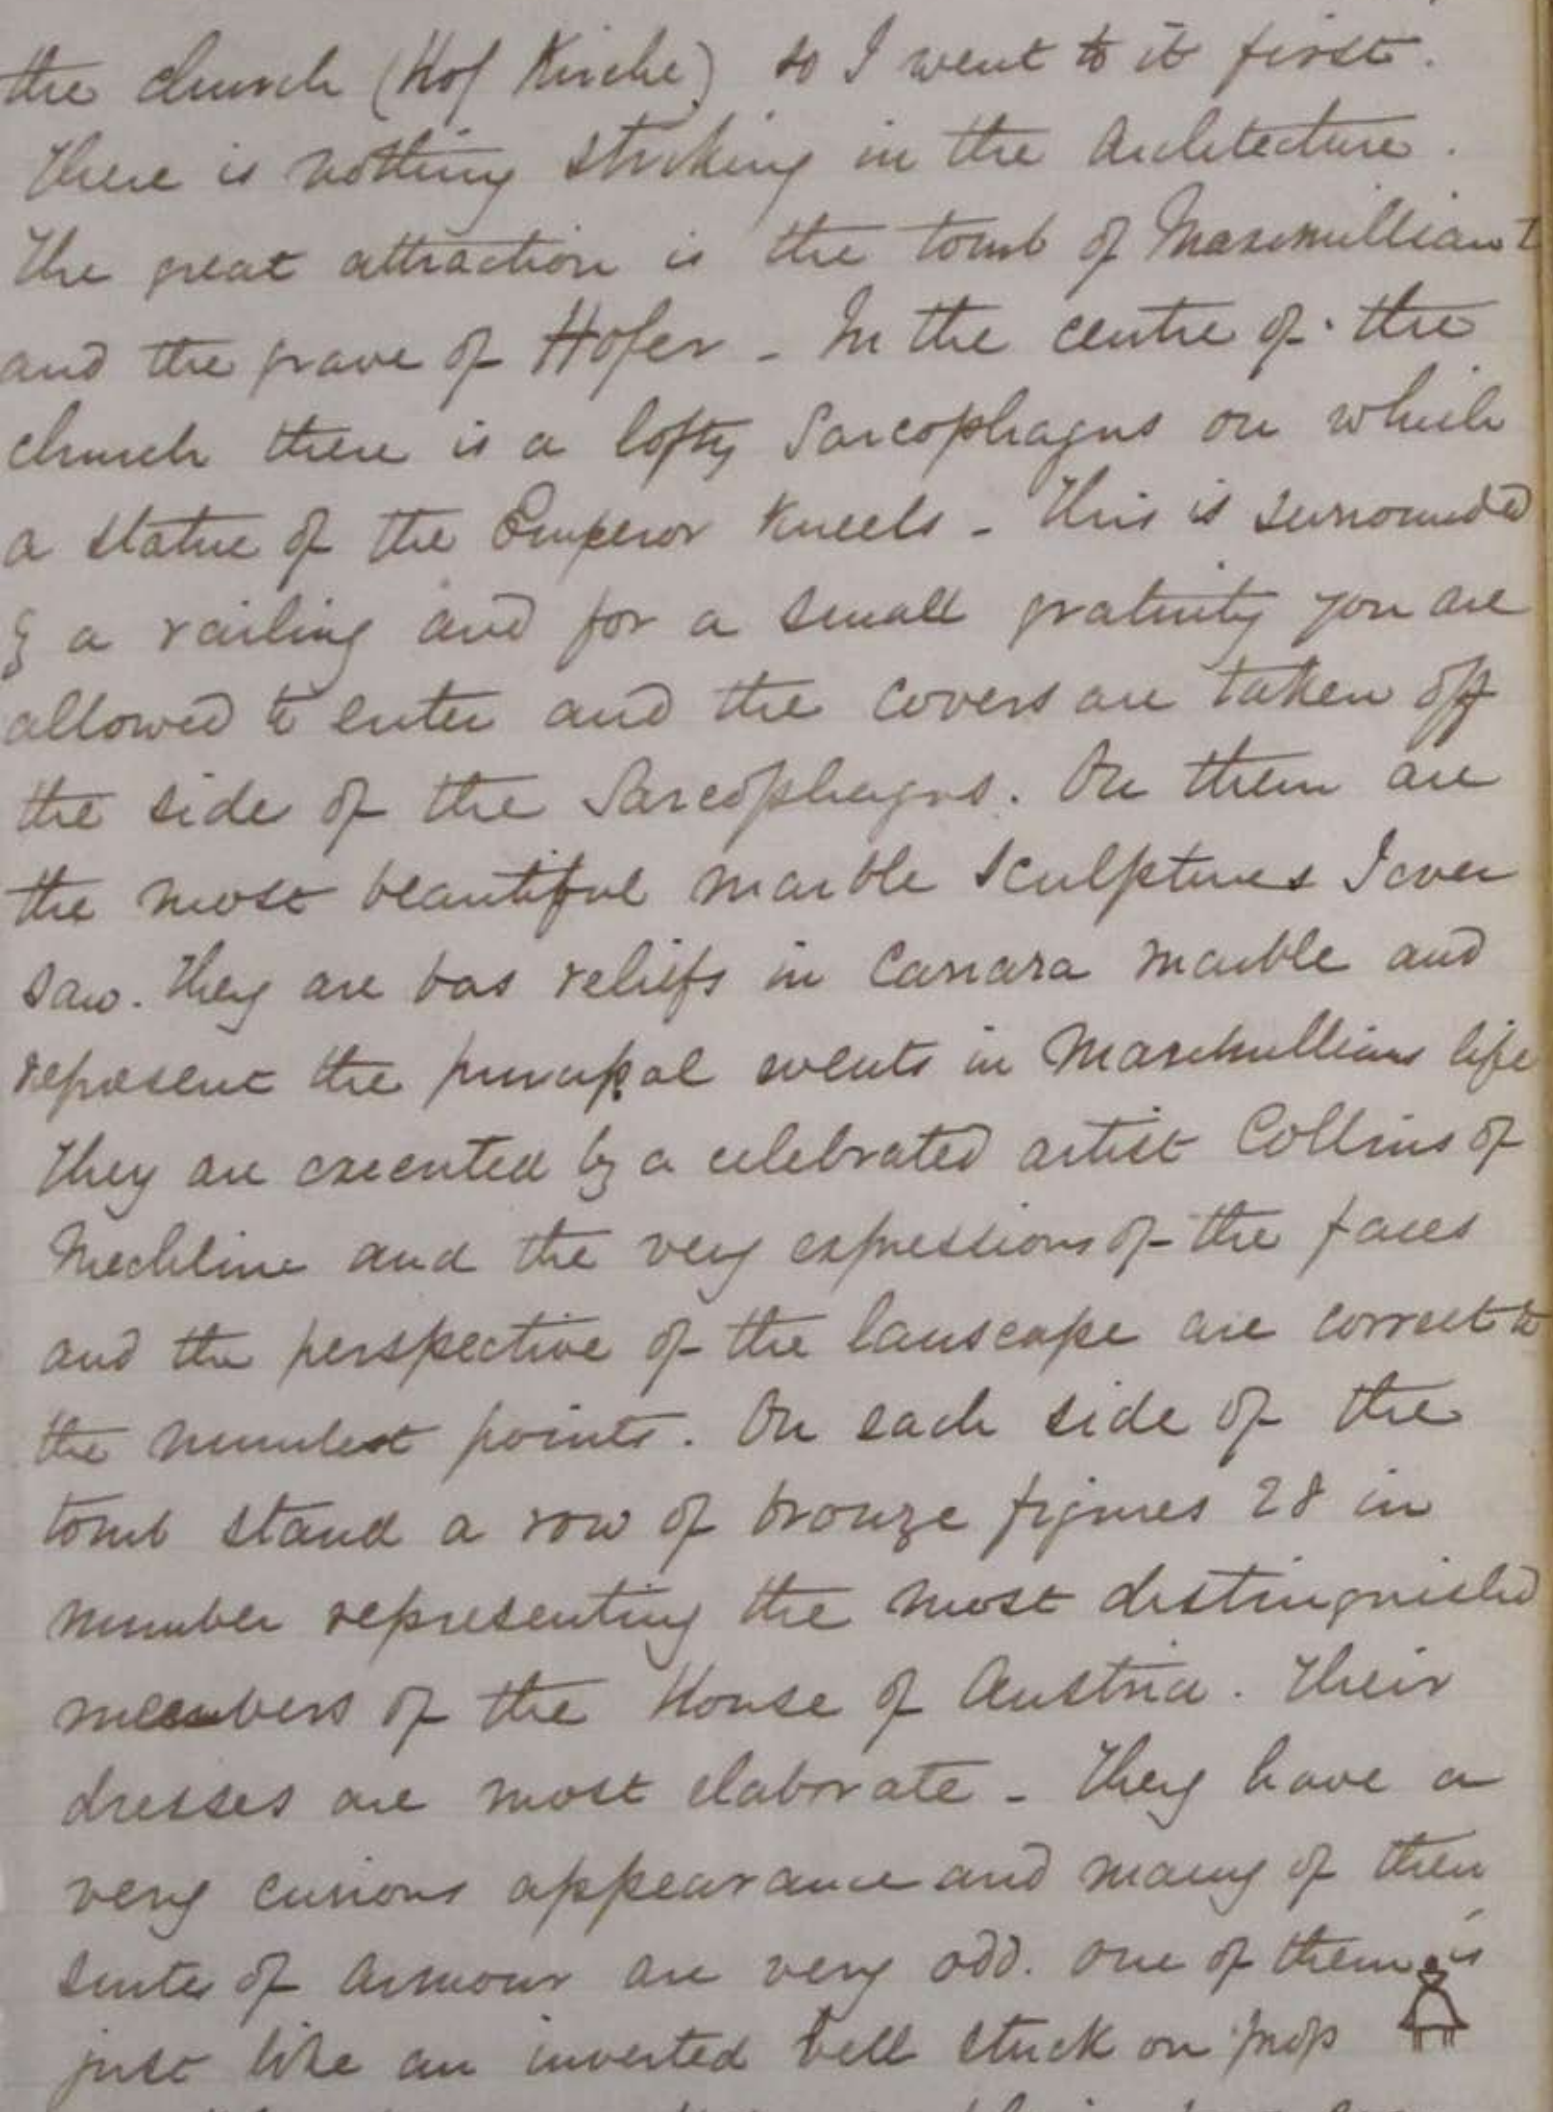 the church (Hof Kirche) so I went to it first.
There is nothing striking in the Architecture.
The great attraction is the tomb of Maximillian I
and the grave of Hofer - In the centre of the
church there is a lofty Sarcophagus on which
a statue of the Emperor kneels - This is surrounded
by a railing and for a small gratuity you are
allowed to enter and the covers are taken off
the side of the Sarcophagus. On them are
the most beautiful marble sculptures I ever
saw. They are bas reliefs in Carrara marble and
represent the principal events in Maximillians life
They are executed by a celebrated artist Collins of
Mechline and the very expressions of the faces
and the perspective of the lanscape are correct to
the minutest points. On each side of the
tomb stand a row of bronze figures 28 in
number representing the most distinguished
members of the House of Austria. Their
dresses are most elaborate - They have a
very curious appearance and many of their
suites of Armour are very odd. one of them is
just like an inverted bell stuck on props